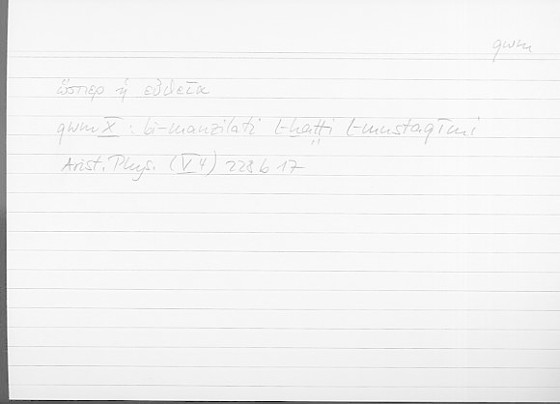 qwm
ὥσπερ ἡ εὐθεῖα
qwm X : bi-manzilati l-ḫaṭṭi l-mustaqīmi
Arist. Phys. (V 4) 228 b 17